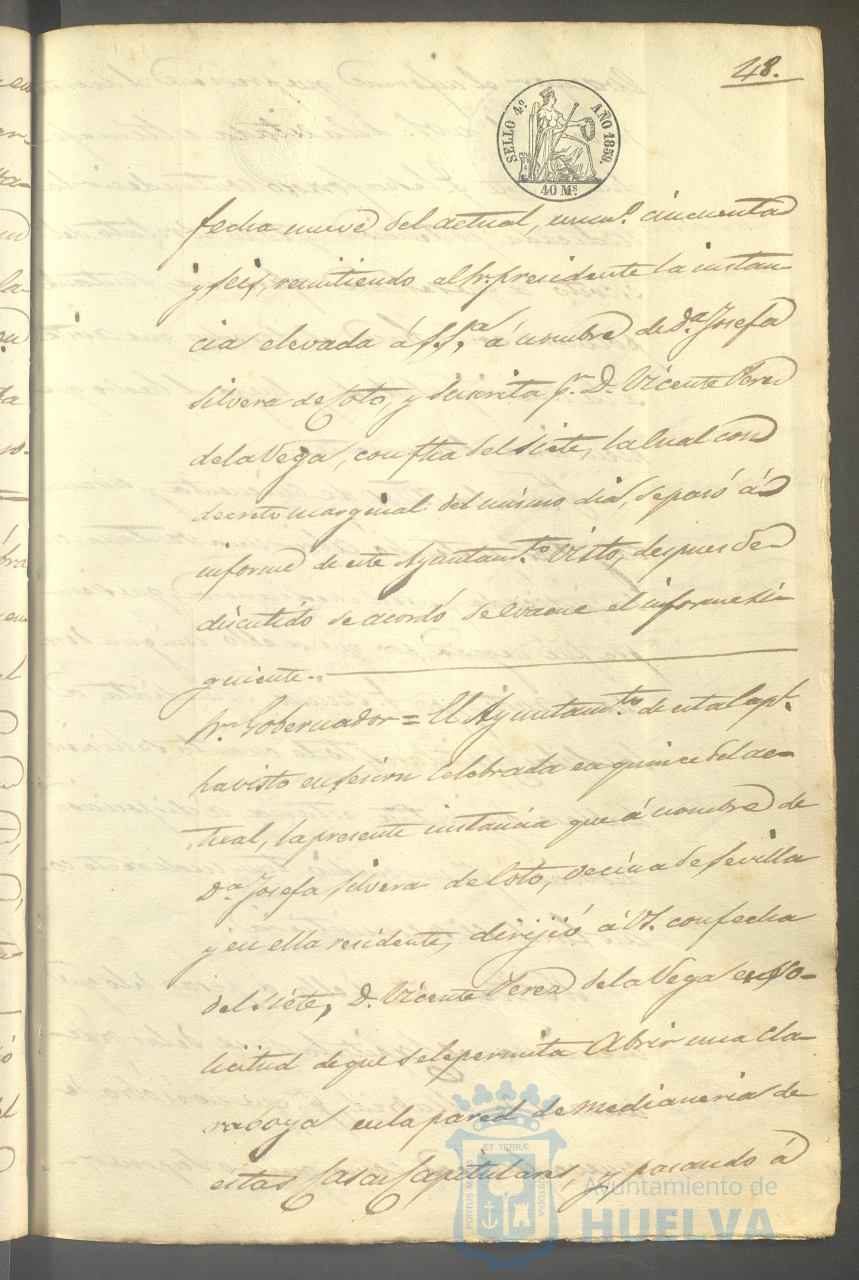 48.
SELLO 4º AÑO 1859.
40 Ms.
fecha nueve del actual, num.º cincuenta
y seis, remitiendo al Sr. presidente la instan-
cia elevada á S. Sª á nombre de Dª Josefa
Silvera de Soto, y suscrita pr. D. Vicente Perez
de la Vega, con fha del siete, la cual con
decreto marginal del mismo dia, se pasó á
informe de este Ayuntamto. Visto, despues de
discutido se acordó se evacue el informe si-
guiente.
Sr. Gobernador = El Ayuntamto. de esta Capl.
ha visto en sesion celebrada en quince del ac-
tual, la presente instancia que á nombre de
Dª Josefa Silvera de Soto, vecina de Sevilla
y en ella residente, dirijió á VS. con fecha
del siete, D. Vicente Perez de la Vega en so-
licitud de que se le permita abrir una cla-
raboya en la pared de medianeria de
estas Casas Capitulares, y pasando á
ET TERRÆ
PORTUS MARIS
CUSTODIA
Ayuntamiento de
HUELVA